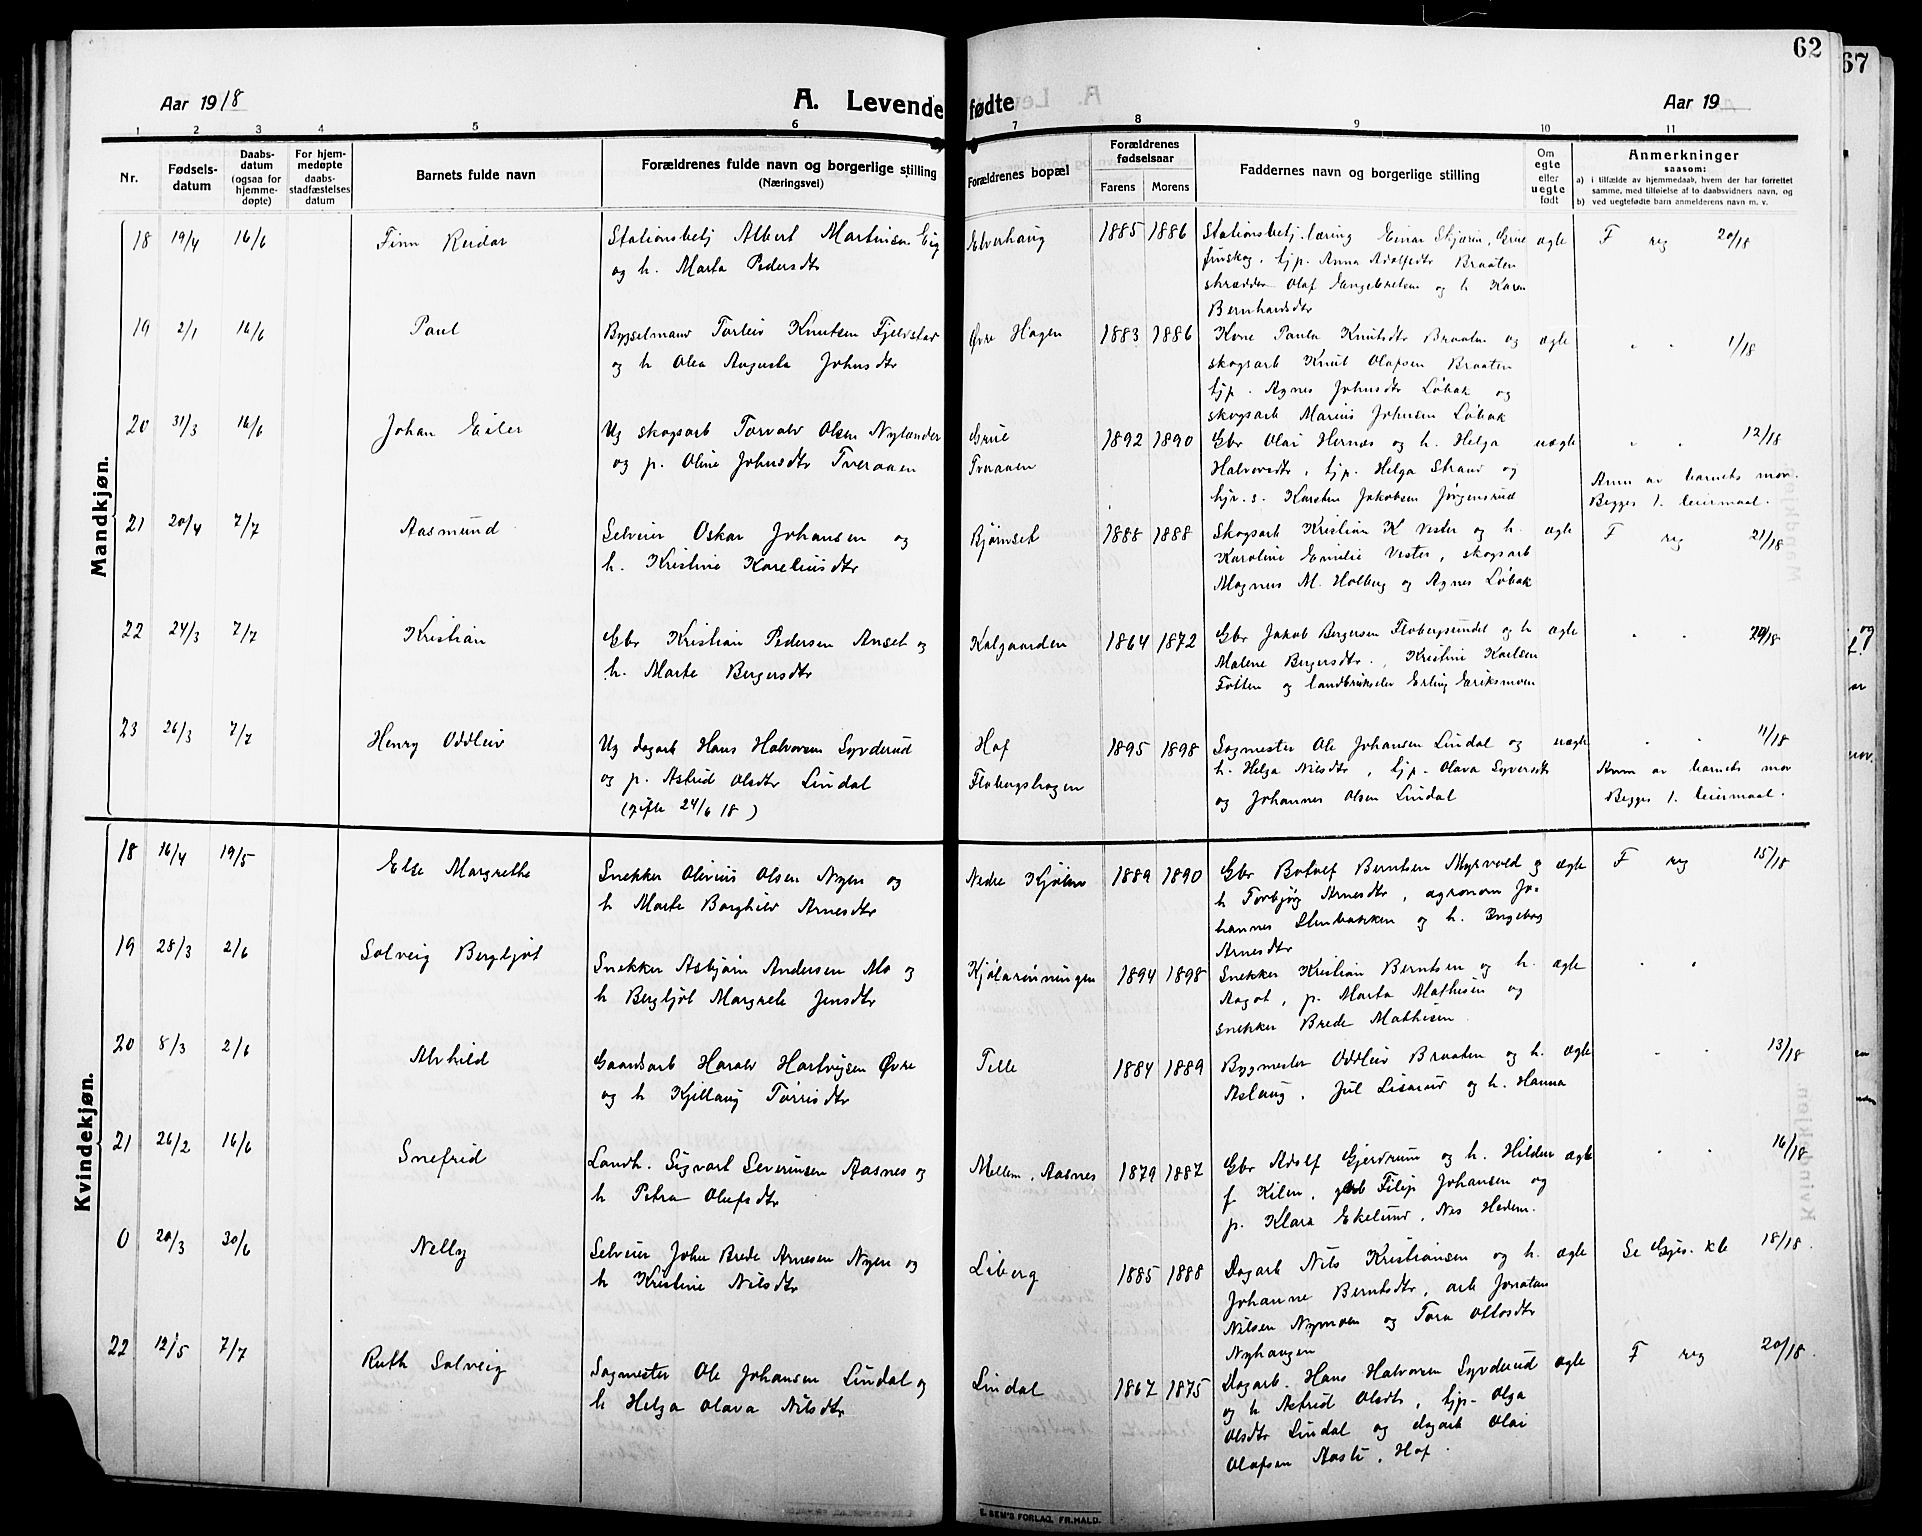 62
67
Aar 1918
A. Levende fødte
Aar 19
1 2 3 4 5 6 7 8 9 10 11
Nr.
Fødsels-
datum
Daabs-
datum
(ogsaa for
hjemme-
døpte)
For hjem-
medøpte
daabs-
stadfæstelses
datum
Barnets fulde navn
Forældrenes fulde navn og borgerlige stilling
(Næringsvei)
Forældrenes bopæl
Forældrenes
fødselsaar
Farens Morens
Faddernes navn og borgerlige stilling
Om
egte
eller
uegte
født
Anmerkninger
saasom:
a) i tilfælde av hjemmedaab, hvem der har forrettet
samme, med tilføielse af to daabsvidners navn, og
b) ved uegtefødte barn anmelderens navn m. v.
Mandkjøn.
18 19/4 16/6 Finn Reidar
Stationsbetj Albert Martinsen Eig
og h. Marta Pedersdtr
Elverhaug 1885 1886
Stationsbetj.læring Einar Skjærin, Grue
Finskog, tjp. Anna Adolfsdtr Braaten
skrædder Olaf Engebretsen og h Karen
Bernhardsdtr
egte F reg 20/18
19 2/1 16/6 Paul
Bygselmand Torleiv Knutsen Fjeldstad
og h Olea Augusta Johnsdtr
Øvre Hagen 1883 1886
Kone Paula Knutsdtr Braaten og
skogsarb Knut Olafsen Braaten
tjp. Agnes Johnsdtr Løbak og
skogsarb Marius Johnsen Løbak
egte " " 1/18
20 31/3 16/6 Johan Eiler
Ug skogsarb Torvald Olsen Nylander
og p. Oline Johnsdtr Tveraaen
Grue
Tveraaen
1892 1890
Gbr Olai Hernæs og h. Helga
Halvorsdtr, tjp. Helga Strand og
hjv. s. Karsten Jakobsen Jørgensrud
uegte " " 12/18
Anm av barnets mor.
Begges 1. leiermaal.
21 20/4 7/7 Aasmund
Selveier Oskar Johansen og
h. Kristine Kareliusdtr
Bjørnset 1888 1888
Skogsarb Kristian K Vester og h.
Karoline Emilie Vester, skogsarb
Magnus M. Holberg og Agnes Løbak
egte F reg 21/18
22 24/3 7/7 Kristian
Gbr Kristian Pedersen Anset og
h. Marte Bergersdtr
Kalgaarden 1864 1872
Gbr Jakob Bergersen Flobergsundet og h
Malene Bergersdtr., Kristine Karlsen
Totten og landbrukselev Erling Eriksmoen
egte " " /18
23 26/3 7/7 Henry Oddleiv
Ug dagarb Hans Halvorsen Syverud
og p. Astrid Olsdtr Lindal
(gifte 24/6 18)
Hof
Flobergshagen
1895 1898
Sagmester Ole Johansen Lindal og
h. Helga Nilsdtr, tjp. Olava Syversdtr
og Johannes Olsen Lindal
uegte " " 11/18
Anm av barnets mor
Begges 1. leiermaal.
Kvindekjøn.
18 16/4 19/5 Else Margrethe
Snekker Olivius Olsen Nyen og
h Marte Borghild Arnesdtr
Nedre Kjølen 1889 1890
Gbr Botolf Berntsen Myrvold og
h Torbjørg Arnesdtr, agronom Jo-
hannes Stenbakken og h. Ingeborg
Arnesdtr
egte F reg 15/18
19 28/3 2/6 Solveig Bergljot
Snekker Asbjørn Andersen Mo og
h Bergljot Margrete Jensdtr
Kjølarønningen 1894 1898
Snekker Kristian Berntsen og h.
Aagot, p. Marta Mathisen og
snekker Brede Mathisen
egte " "
20 8/3 2/6 Alvhild
Gaardsarb Harald Hartvigsen Øvre
og h Kjellaug Torrisdtr
Telle 1884 1889
Bygmester Oddleiv Braaten og h.
Aslaug, Jul Lisarud og h. Hanna
egte " " 13/18
21 26/2 16/6 Snefrid
Landh. Sigvart Severinsen Aasnes og
h Petra Olufsdtr
Mellem. Aasnes 1879 1887
Gbr Adolf Gjerdrum og h. Hildur
f Kilen, Filip Johansen og
p. Klara Ekelund, Nes Hedem.
egte " " 16/18
0 20/3 30/6 Nelly
Selveier Johan Brede Arnesen Nyen og
h Kristine Nilsdtr
Liberg 1885 1888
Dagarb Nils Kristiansen og h.
Johanne Berntsdtr, arb Jonatan
Nilsen Nymoen og Tora Ottosdtr
Nyhaugen
egte Se Gjes. kb 18/18.
22 12/5 7/7 Ruth Solveig
Sagmester Ole Johansen Lindal og
h Helga Olava Nilsdtr
Lindal 1867 1875
Dagarb. Hans Halvorsen Syverud
og h Astrid Olsdtr, tjp. Olga
Olsdtr Lindal og dagarb Olai
Olafsen Aaste, Hof.
egte F reg 20/18.
E. SEM'S FORLAG, FR.HALD.